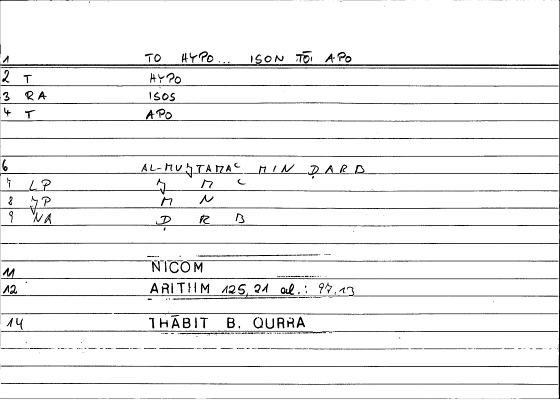 1 TO HYPO... ISON TŌI APO
2 T HYPO
3 RA ISOS
4 T APO
6 AL-MUǦTAMAʿ MIN ḌARB
7 LP Ǧ M ʿ
8 ǦP M N
9 NA Ḍ R B
11 NICOM
12 ARITHM 125,21 al.: 97,13
14 THĀBIT B. QURRA